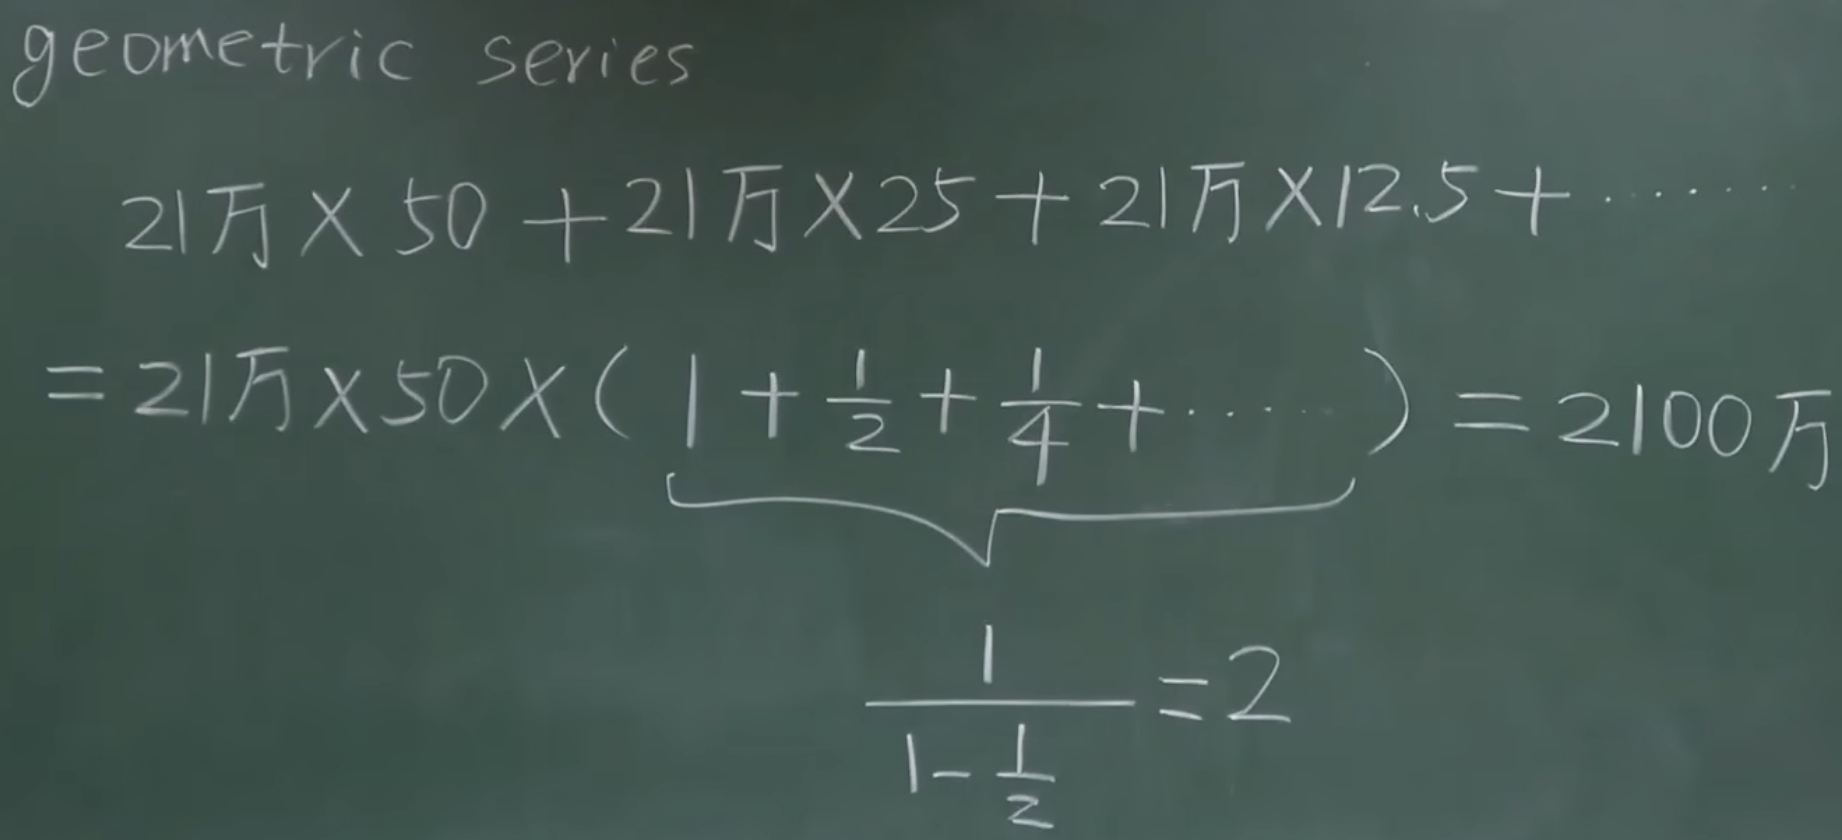 geometric series
21万×50+21万×25+21万×12.5+⋯⋯
=21万×50×(1+1/2+1/4+⋯⋯)=2100万
1/(1-1/2)=2